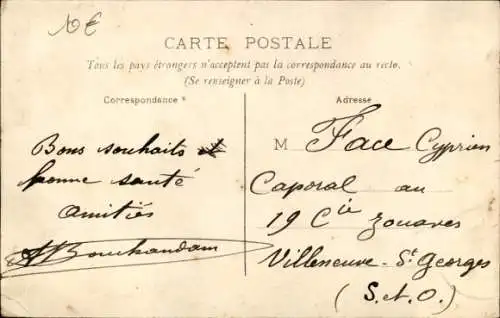 10€
CARTE POSTALE
Tous les pays étrangers n'acceptent pas la correspondance au recto.
(Se renseigner à la Poste)
Correspondance
Adresse
Bons souhaits et
bonne santé
amitiés
M Face Cyprien
Caporal au
19 Cie zouaves
Villeneuve-St Georges
(S.et.O.)